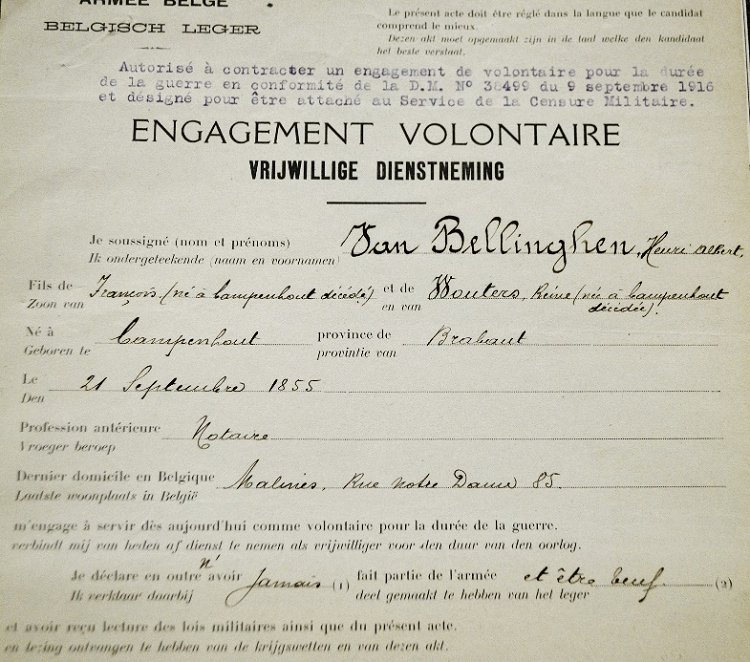 ARMÉE BELGE
BELGISCH LEGER
Le présent acte doit être réglé dans la langue que le candidat
comprend le mieux.
Dezen akt moet opgemaakt zijn in de taal welke den kandidaat
het beste verstaat.
Autorisé à contracter un engagement de volontaire pour la durée
de la guerre en conformité de la D.M. N° 38499 du 9 septembre 1916
et désigné pour être attaché au Service de la Censure Militaire.
ENGAGEMENT VOLONTAIRE
VRIJWILLIGE DIENSTNEMING
Je soussigné (nom et prénoms) Van Bellinghen, Henri Albert,
Ik ondergeteekende (naam en voornamen)
Fils de François, (né à Campenhout décédé) et de Wouters, Reine (née à Campenhout
Zoon van en van décédée).
Né à Campenhout province de Brabant
Geboren te provintie van
Le 21 Septembre 1855
Den
Profession antérieure Notaire
Vroeger beroep
Dernier domicile en Belgique Malines, Rue Notre Dame 85.
Laatste woonplaats in België
m'engage à servir dès aujourd'hui comme volontaire pour la durée de la guerre.
verbindt mij van heden af dienst te nemen als vrijwilliger voor den duur van den oorlog.
Je déclare en outre n'avoir Jamais (1) fait partie de l'armée et être veuf (2)
Ik verklaar daarbij deel gemaakt te hebben van het leger
et avoir reçu lecture des lois militaires ainsi que du présent acte.
en lezing ontvangen te hebben van de krijgswetten en van dezen akt.